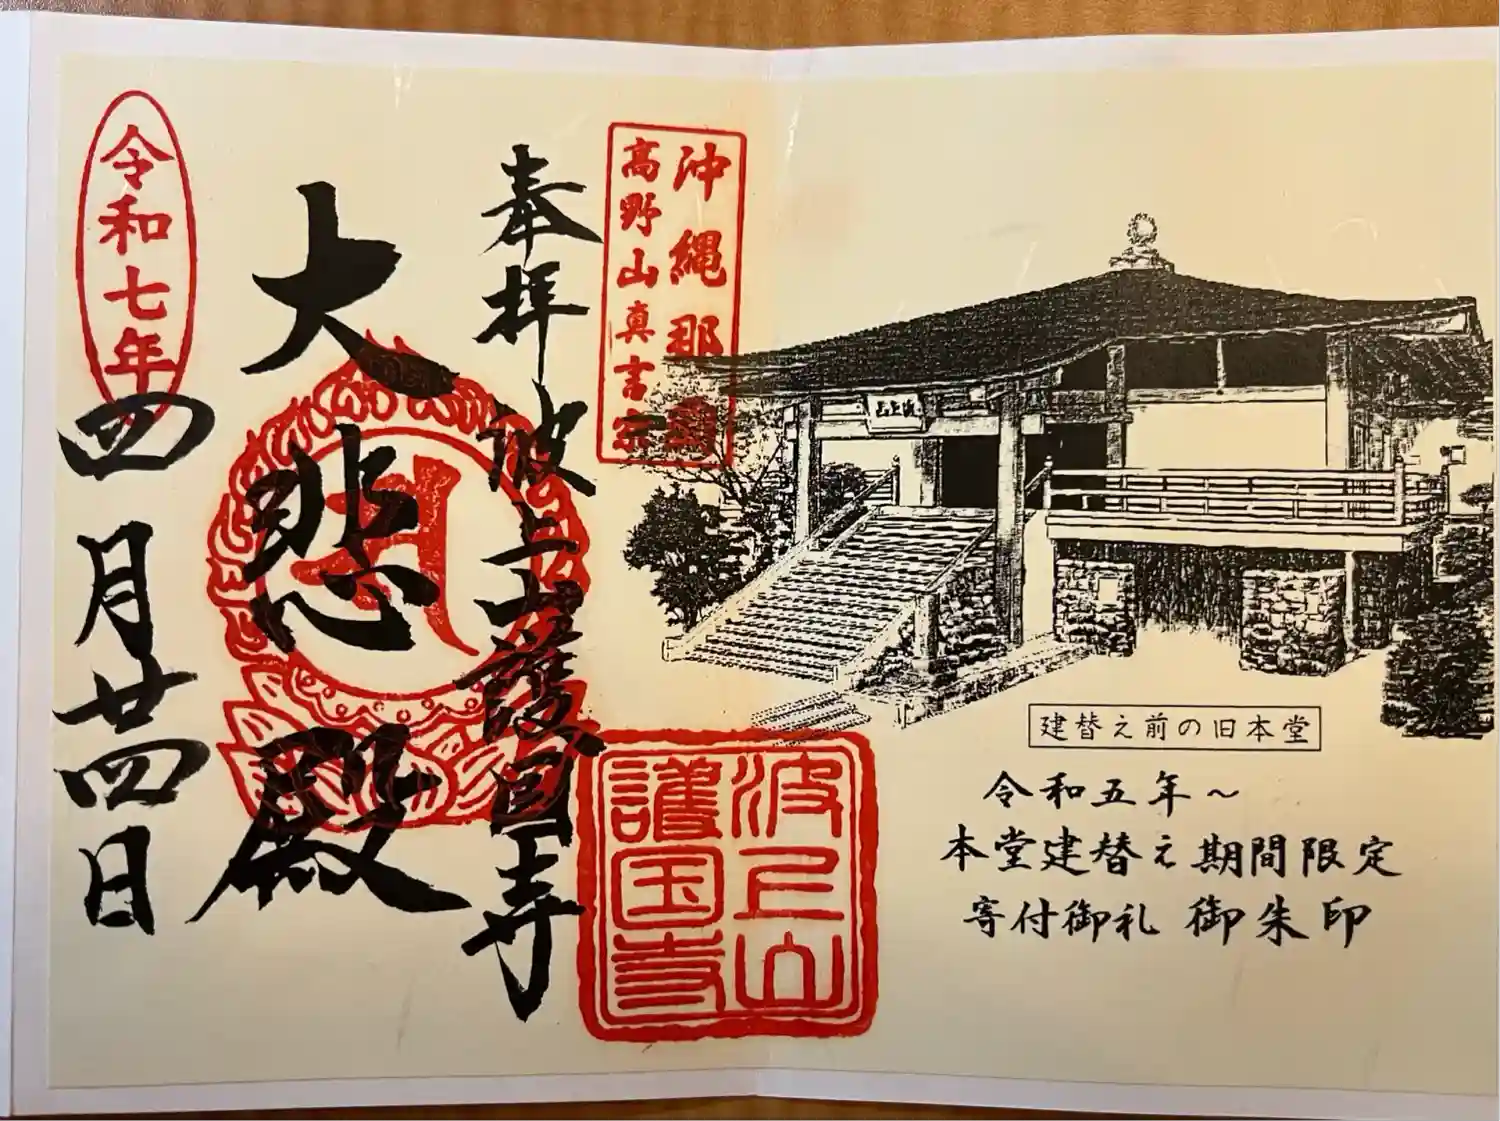 沖縄那覇
高野山真言宗
奉拝 波上山護国寺
大悲殿
令和七年
四月廿四日
波上山
護国寺
波上山
建替え前の旧本堂
令和五年～
本堂建替え期間限定
寄付御礼 御朱印